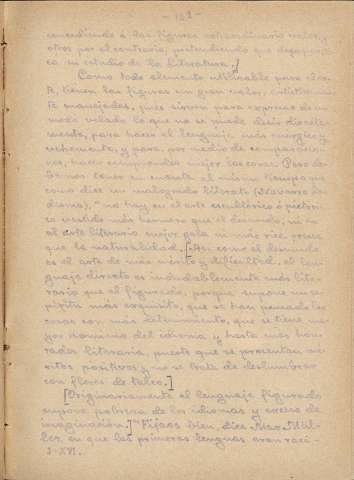 - 121 -
concediendo á las figuras extraordinario valor, y
otros por el contrario, pretendiendo que desaparez-
ca su estudio de la Literatura.
Como todo elemento utilizable para el ar-
te, tienen las figuras un gran valor,
te manejadas, pues sirven para expresar de un
modo velado lo que no se puede decir directa-
mente, para hacer el lenguaje más enérgico y
vehemente, y para, por medio de comparacio-
nes, hacer comprender mejor las cosas. Pero de-
bemos tener en cuenta al mismo tiempo que
como dice un malogrado literato (Navarro Le-
desma), "no hay en el arte escultórico ó pictóri-
co vestido más hermoso que el desnudo, ni en
el arte literario mejor gala ni más rico
que la naturalidad. [Así como el desnudo
es el arte de más mérito y dificultad, el len-
guaje directo es indudablemente más lite-
rario que el figurado, porque supone un es-
píritu más exquisito, que se han pensado las
cosas con más detenimiento, que se tiene ma-
yor dominio del idioma y hasta más hon-
radez literaria, puesto que se presentan mé-
ritos positivos y no se trata de deslumbrar
con flores de talco.]
[Originariamente el lenguaje figurado
supone pobreza de los idiomas y exceso de
imaginación.] "Fijaos bien, dice Max Mül-
ler, en que las primeras lenguas eran
I-XVI.